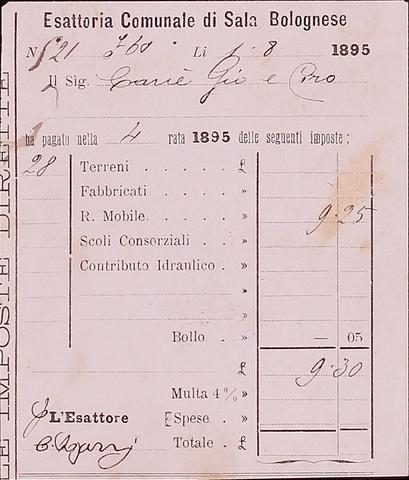 Esattoria Comunale di Sala Bolognese
N. 521 Li 1. 8 1895
Il Sig. Gio e
ha pagato nella 4 rata 1895 delle seguenti imposte:
28 Terreni . . . . . £
Fabbricati . . . . »
R. Mobile . . . . » 9. 25
Scoli Consorziali . . »
Contributo Idraulico . »
»
»
Bollo . » — 05
£ 9. 30
Multa 4 % »
L'Esattore Spese . »
Totale . £
LE IMPOSTE DIRETTE